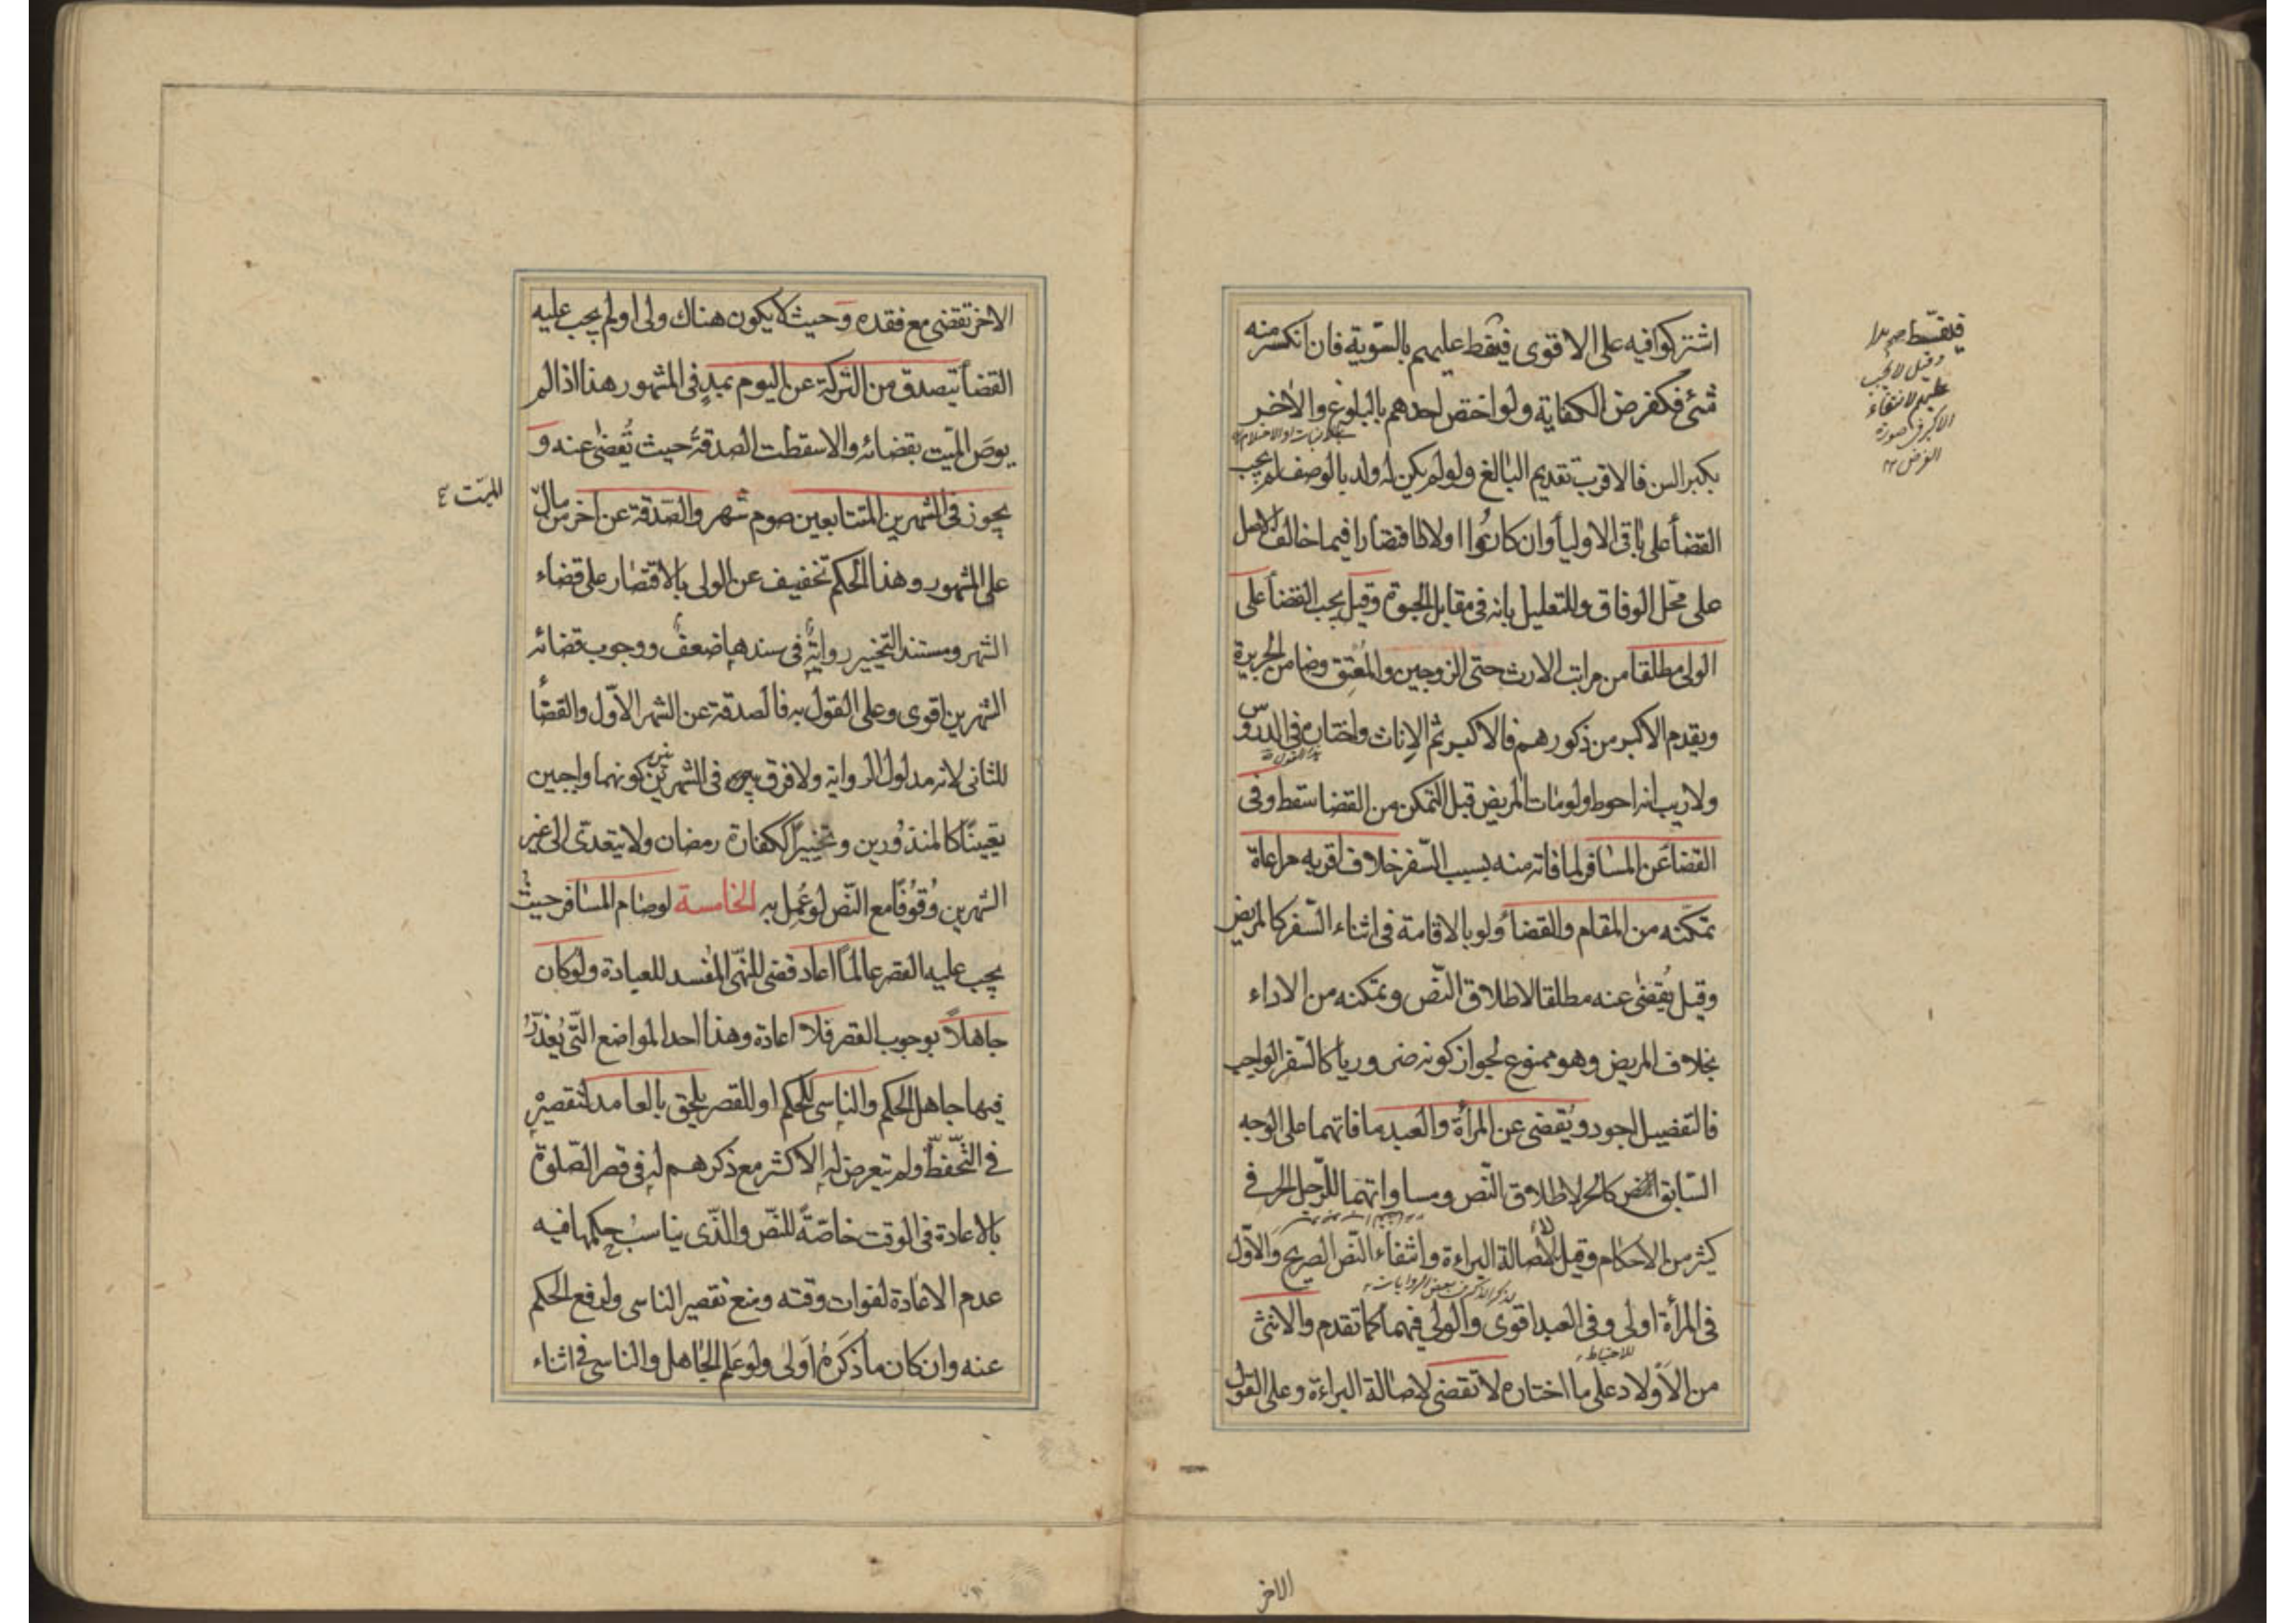 اشتركوا فيه على الاقوى فيقسط عليهم بالسّوية فان انكسر منه
شئ فكفرض الكفاية ولو اختص احدهم بالبلوغ والاخر
بكبر السن فالاقرب تقديم البالغ ولو لم يكن له ولد بالوصف لم يجب
القضأ على باقى الاوليأ وان كانوا اولادا اقتصارا فيما خالف الاصل
على محّل الوفاق وللتعليل بانه فى مقابل الحبوة وقيل يجب القضأ على
الولى مطلقا من مراتب الارث حتى الزوجين والمُعتِق وضامن الجريرة
ويقدم الاكبر من ذكورهم فالاكبر ثم الاناث واختاره فى الدروس
ولا ريب انه احوط ولو مات المريض قبل التمكن من القضا سقط وفى
القضا عَن المسافر لما فاته منه بسبب السّفر خلاف اقربه مراعاة
تمكّنه من المقام والقضأ ولو بالاقامة فى اثناء السّفر كالمريض
وقيل يُقضى عنه مطلقا لاطلاق النّص وتمكنه من الاداء
بخلاف المريض وهو ممنوع لجواز كونه ضروريا كالسّفر الواجب
فالتفصيل اجود ويُقضى عن المرأة والعبد ما فاتهما على الوجه
السّابق كالحر لاطلاق النّص ومساواتهما للرّجل الحر فى
كثير من الاحكام وقيل لا لأصالة البراءة وانتفاء النّص الصريح والاوّل
فى المرأة اولى وفى العبد اقوى والولى فيهما كما تقدم والانثى
من الاَولاد على ما اختاره لا تقضى لاصالة البراءة وعلى القول
فيقسّط
وقيل لا يجب
عليهم لانتفاء
الاكبر فى صورة
الفرض
للاحتياط
الاخر
الاخر تقضى مع فقده وحيث لا يكون هناك ولى او لم يجب عليه
القضأ يتصدق من التركة عن اليوم بمدٍ فى المشهور هذا اذا لم
يوصَ الميّت بقضائه والا سقطت الصدقةُ حيث يُقضى عنه و
يجوز فى الشهرين المتتابعين صوم شهر والصّدقة عن آخر من مال
الميّت
على المشهور وهذا الحكم تخفيف عن الولى بالاقتصار على قضاء
الشهر ومستند التخيير روايةٌ فى سندها ضعفٌ ووجوب قضائه
الشهرين اقوى وعلى القول به فالصدقة عن الشهر الاوّل والقضأ
للثانى لانه مدلول الرواية ولا فرق فى الشهرين بين كونهما واجبين
تعيينًا كالمنذُورين وتخييرًا ككفارة رمضان ولا يتعدّى الى غير
الشهرين وُقوُفًا مع النّص لو عُمِل به الخامسة لو صام المسافر حيث
يجب عليه القصر عالمًا اعاد قضى للنّهى المُفسد للعبادة ولو كان
جاهلاً بوجوب القصر فلا اعادة وهذا احد المواضع التّى يُعذَرُ
فيها جاهل الحكم والناسى للحكم او للقصر يلحق بالعامد لتقصيرِه
فى التّحفظّ ولم يتعرض له الاكثر مع ذكرهم له فى قصر الصّلوة
بالاعادة فى الوقت خاصّةً للنّص والذّى يناسبُ حكمها فيه
عدم الاعادة لفوات وقته ومنع تقصير الناسى ولرفع الحكم
عنه وان كان ما ذكَرهُ اَولى ولو عَلِم الجاهل والناسى فى اثناء